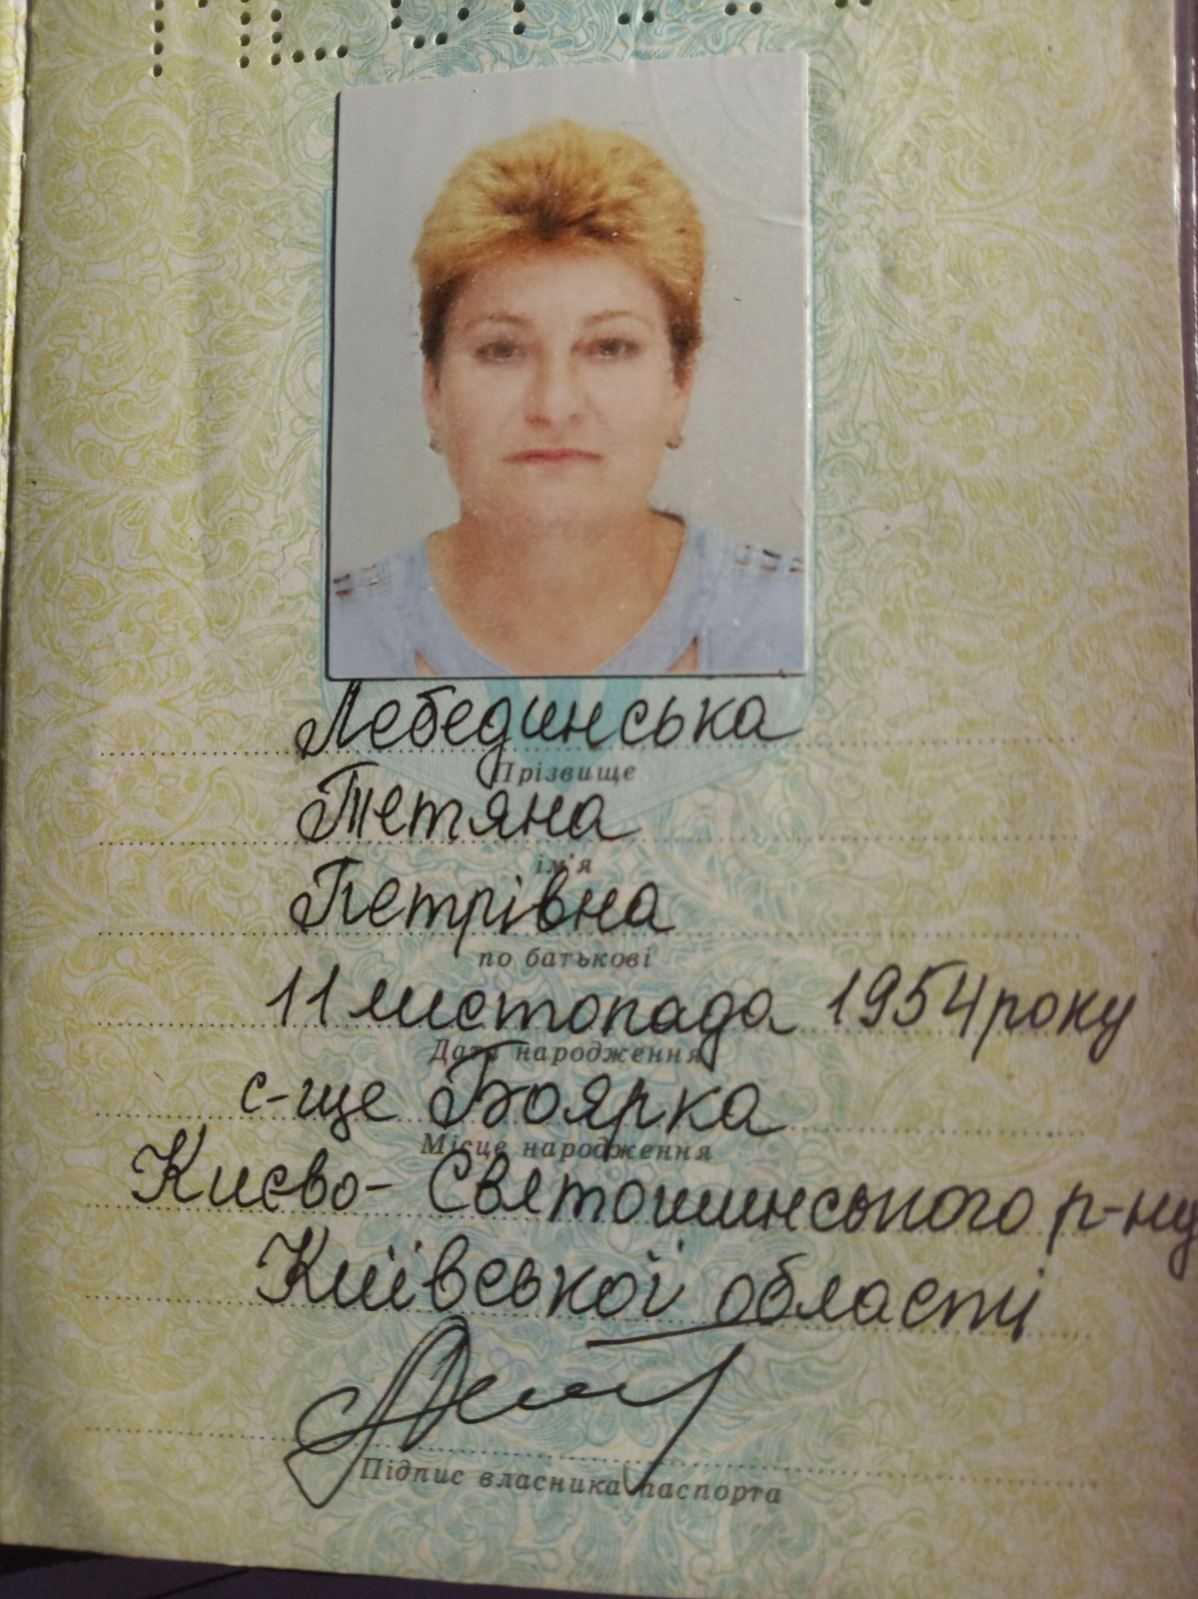 Лебединська
Прізвище
Тетяна
ім'я
Петрівна
по батькові
11 листопада 1954 року
Дата народження
с-ще Боярка
Місце народження
Києво-Святошинського р-ну
Київської області
Підпис власника паспорта